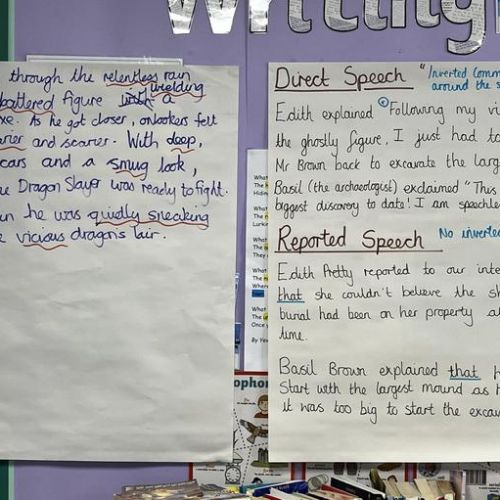 Writing
through the relentless rain
wielding
battered figure with a
xe. As he got closer, onlookers felt
and scarier. With deep,
cars and a smug look,
Dragon Slayer was ready to fight.
he was quietly sneaking
vicious dragons lair.
Direct Speech "Inverted Comm
around the s
Edith explained "Following my vi
the ghostly figure, I just had to
Mr Brown back to excavate the larg
Basil (the archaeologist) exclaimed "This
biggest discovery to date! I am speechle
Reported Speech No inverted
Edith Pretty reported to our inte
that she couldn't believe the sh
burial had been on her property al
time.
Basil Brown explained that h
start with the largest mound as h
it was too big to start the excav
What
The
Hidin
What
The
Lurkin
What
The
They
What
The
Where
What
The
Once y
By Yea
ophon